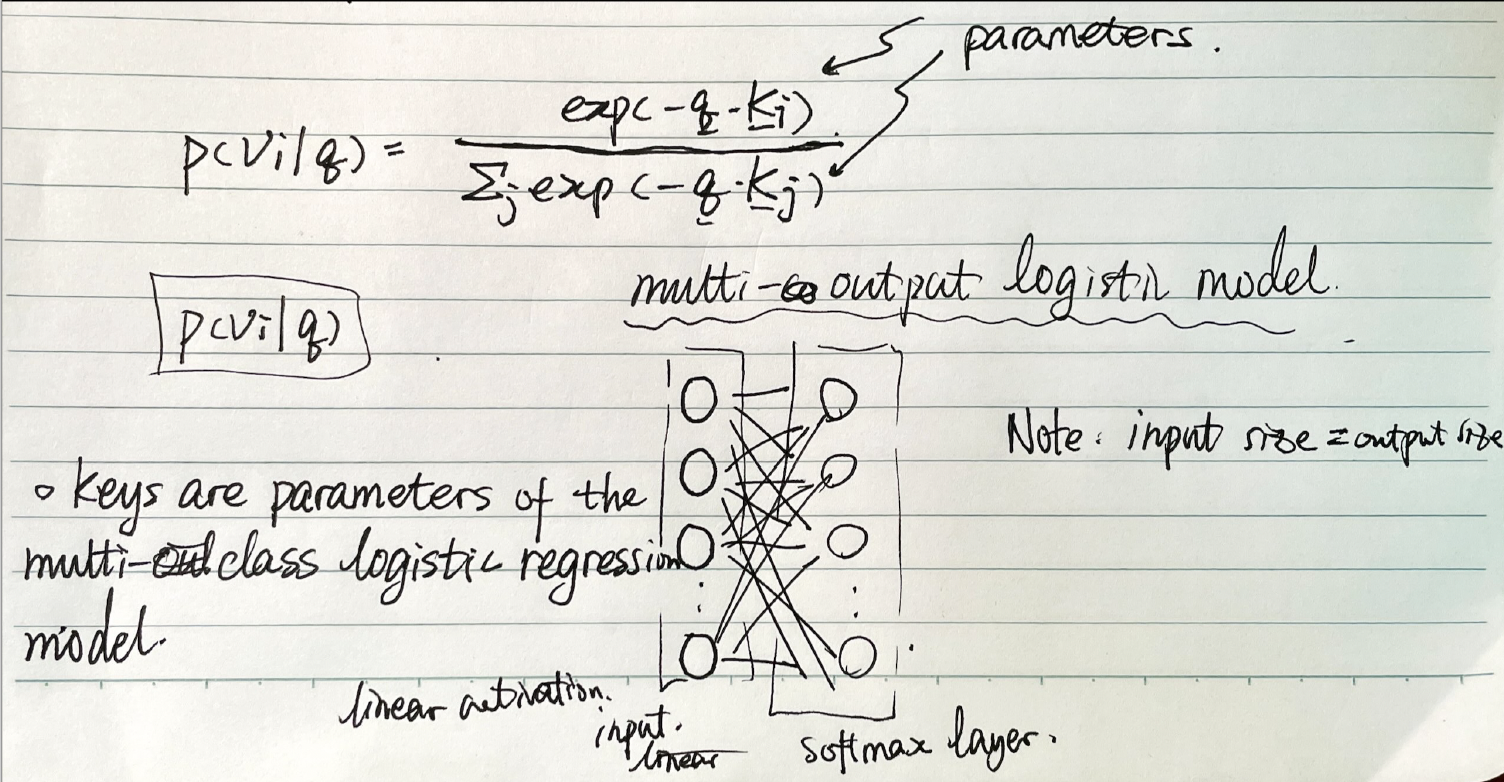 parameters.
p(vi|q) = exp(-q·ki) / Σj exp(-q·kj)
multi-output logistic model.
p(vi|q)
Note: input size = output size
◦ keys are parameters of the
multi-class logistic regression
model.
linear activation.
input.
linear
softmax layer.